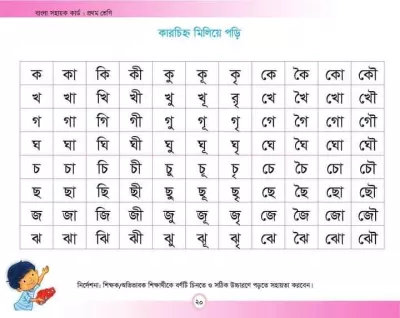 বাংলা সহায়ক কার্ড : প্রথম শ্রেণি
কারচিহ্ন মিলিয়ে পড়ি
ক কা কি কী কু কূ কৃ কে কৈ কো কৌ
খ খা খি খী খু খূ খৃ খে খৈ খো খৌ
গ গা গি গী গু গূ গৃ গে গৈ গো গৌ
ঘ ঘা ঘি ঘী ঘু ঘূ ঘৃ ঘে ঘৈ ঘো ঘৌ
চ চা চি চী চু চূ চৃ চে চৈ চো চৌ
ছ ছা ছি ছী ছু ছূ ছৃ ছে ছৈ ছো ছৌ
জ জা জি জী জু জূ জৃ জে জৈ জো জৌ
ঝ ঝা ঝি ঝী ঝু ঝূ ঝৃ ঝে ঝৈ ঝো ঝৌ
নির্দেশনা: শিক্ষক/অভিভাবক শিক্ষার্থীকে বর্ণটি চিনতে ও সঠিক উচ্চারণে পড়তে সহায়তা করবেন।
২০